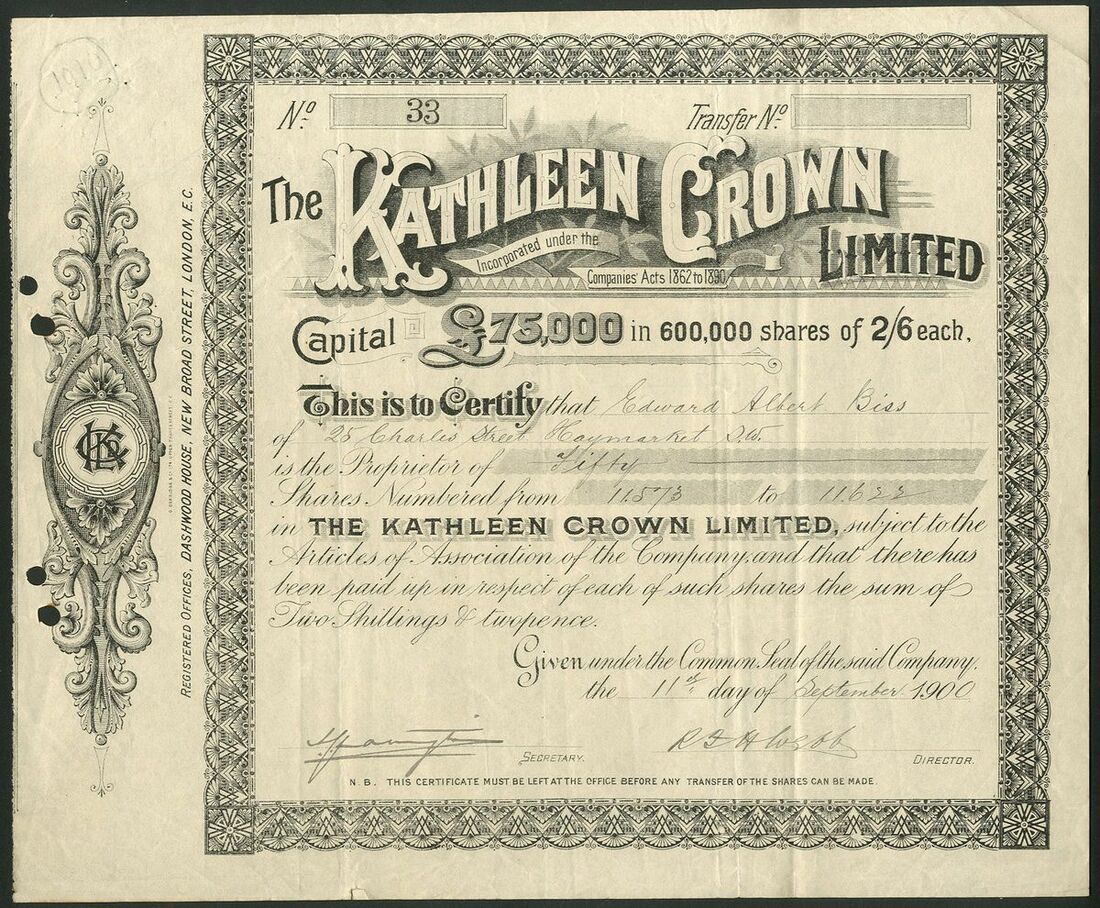 1910
Nº 33 Transfer Nº
The KATHLEEN CROWN LIMITED
Incorporated under the
Companies' Acts 1862 to 1890.
Capital £75,000 in 600,000 shares of 2/6 each,
This is to Certify that Edward Albert Biss
of 25 Charles Street Haymarket S.W.
is the Proprietor of Fifty
Shares Numbered from 11573 to 11622
in THE KATHLEEN CROWN LIMITED, subject to the
Articles of Association of the Company, and that there has
been paid up in respect of each of such shares the sum of
Two Shillings & twopence.
Given under the Common Seal of the said Company,
the 11th day of September 1900
SECRETARY. DIRECTOR.
N.B. THIS CERTIFICATE MUST BE LEFT AT THE OFFICE BEFORE ANY TRANSFER OF THE SHARES CAN BE MADE.
REGISTERED OFFICES, DASHWOOD HOUSE, NEW BROAD STREET, LONDON, E.C.